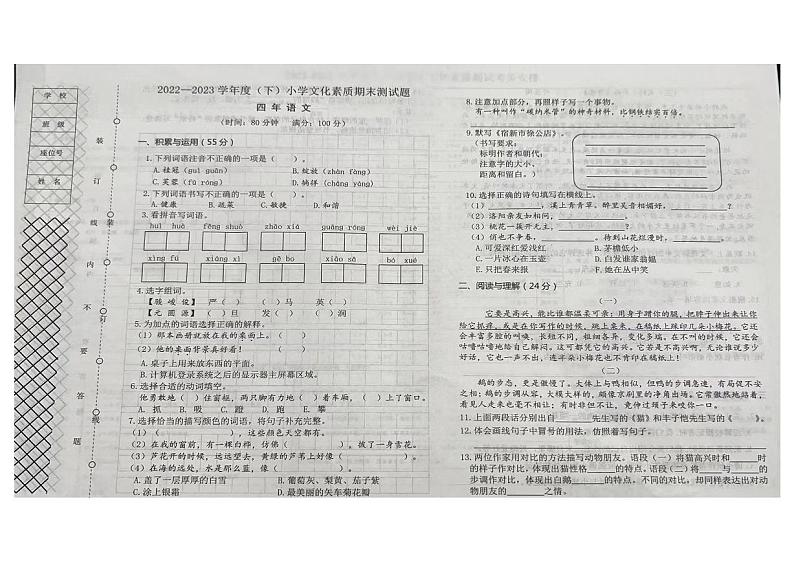 学 校
班 级
座位号
姓 名
装
订
线
内
不
要
答
题
装
订
线
2022—2023 学年度（下）小学文化素质期末测试题
四 年 语 文
（时间：80 分钟 满分：100 分）
一、积累与运用（55 分）
1. 下列词语注音不正确的一项是（ ）。
A. 桂冠（guì guān） B. 绽放（zhàn fàng）
C. 芙蓉（fú róng） D. 徜徉（cháng yáng）
2. 下列词语书写不正确的一项是（ ）。
A. 健康 B. 蔬菜 C. 敏捷 D. 和谐
3. 看拼音写词语。
huī huà fēng shuò zhāo xiá guāng róng wèi jiè
xìng fú xiǎng xì gē bo xiǎo sǎ bō luó
4. 选字组词。
【骁 峻 俊】 严（ ） （ ）马 英（ ）
【元 圆 源】（ ）旦 发（ ） （ ）润
5. 为加点的词语选择正确的解释。
（1）那本画册就放在我的桌面上。（ ）
（2）他的桌面背景真好看！（ ）
A. 桌子上用来放东西的平面。
B. 计算机登录系统之后的显示器主屏幕区域。
6. 选择合适的动词填空。
他勇敢地（ ）住窗框，两只脚有力地（ ）着天棚，（ ）上了窗口。
A. 抓 B. 吸 C. 蹬 D. 跑 E. 攀
7. 选择恰当的描写颜色的词语，将句子补充完整。
（1）（ ），这些颜色天空都有。
（2）在我的窗前，有一棵白桦，仿佛（ ），披了一身雪花。
（3）芦花开的时候，远远望去，黄绿的芦苇上好像（ ）。
（4）在海的远处，水是那么蓝，像（ ）。
A. 盖了一层厚厚的白雪 B. 葡萄灰、梨黄、茄子紫
C. 涂上银霜 D. 最美丽的矢车菊花瓣
8. 注意加点部分，再照样子写一个事物。
有一种叫作“碳纳米管”的神奇材料，比钢铁结实百倍。
9. 默写《宿新市徐公店》。
（书写要求：
标明作者和朝代；
注意字的大小、
距离和留白。）
10. 选择正确的诗句填写在横线上。
（1） ，溪上青青草。醉里吴音相媚好， ？
（2）洛阳亲友如相问， 。
（3）桃花一簇开无主， ？
（4）俏也不争春， 。待到山花烂漫时， 。
A. 可爱深红爱浅红 B. 茅檐低小
C. 一片冰心在玉壶 D. 白发谁家翁媪
E. 只把春来报 F. 她在丛中笑
二、阅读与理解（24 分）
（一）
它要是高兴，能比谁都温柔可亲：用身子蹭你的腿，把脖子伸出来让你
给它抓痒，或是在你写作的时候，跳上桌来，在稿纸上踩印几朵小梅花。它还
会丰富多腔地叫唤，长短不同，粗细各异，变化多端。在不叫的时候，它还会
咕噜咕噜地给自己解闷。这可都凭它的高兴。若是不高兴啊，无论谁说多少
好话，它也一声不出，连半朵小梅花也不肯印在稿纸上！
（二）
鹅的步态，更是傲慢了。大体上与鸭相似，但鸭的步调急速，有局促不安
之相；鹅的步调从容，大模大样的，颇像京剧里的净角出场。它常傲然地站着，
看见人走来也毫不相让；有时非但不让，竟伸过颈子来咬你一口。
11. 上面两段话分别出自 先生写的《猫》和丰子恺先生写的《 》。
12. 体会画线句子中冒号的用法，仿照着写句子。
13. 两位作家用对比的方法描写动物朋友。语段（一）将猫高兴时和 时
的样子作对比，体现出猫性格 的特点。语段（二）将 与 的
步调作对比，体现出白鹅 的特点。不同的对比，却同样表达出对动
物朋友的 之情。